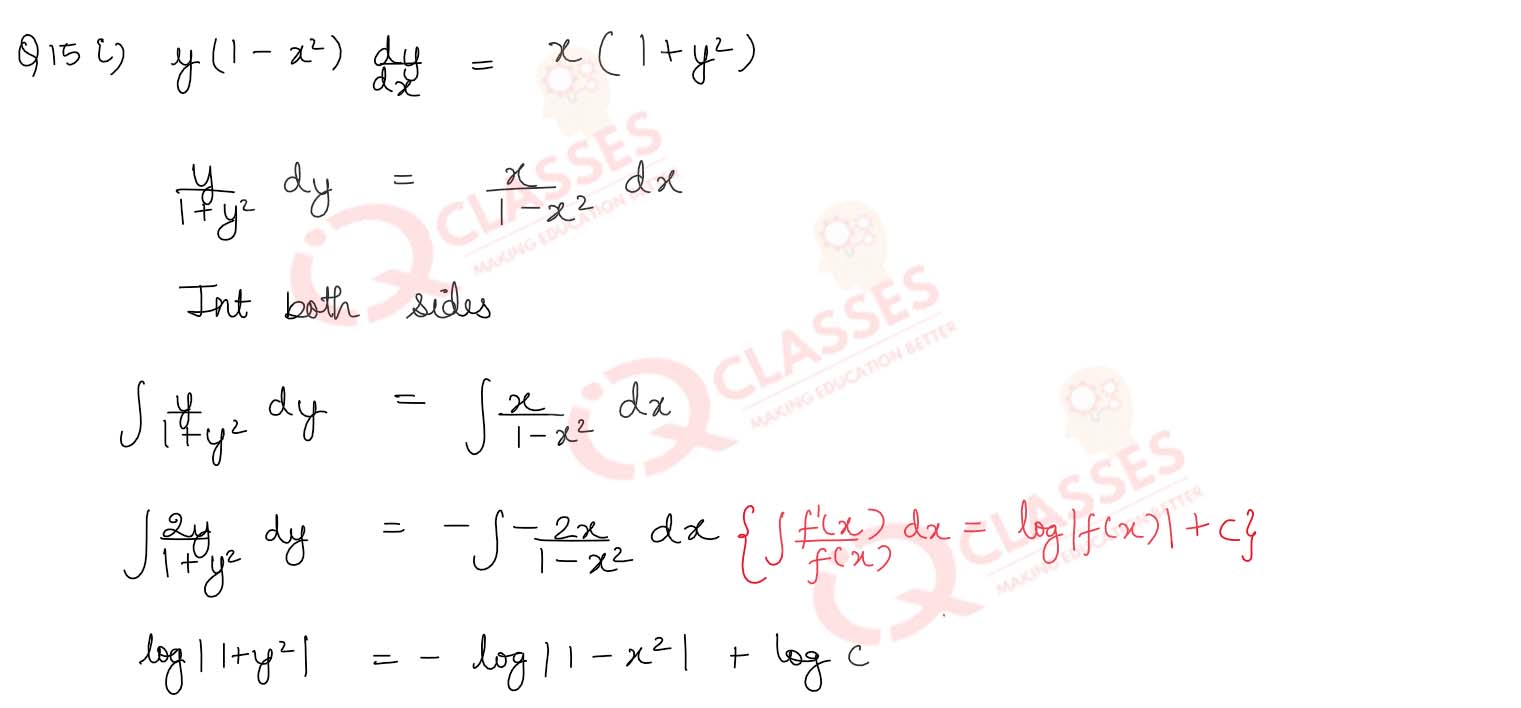 Q15 i) y(1 - x²) dy/dx = x(1+y²)
y/1+y² dy = x/1-x² dx
Int both sides
∫ y/1+y² dy = ∫ x/1-x² dx
∫ 2y/1+y² dy = - ∫ -2x/1-x² dx {∫ f'(x)/f(x) dx = log|f(x)| + c}
log|1+y²| = - log|1-x²| + log c
iQ CLASSES
MAKING EDUCATION BETTER
iQ CLASSES
MAKING EDUCATION BETTER
iQ CLASSES
MAKING EDUCATION BETTER